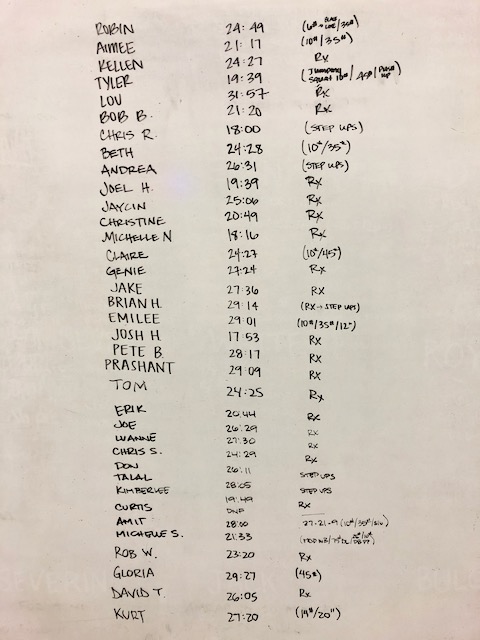 ROBIN 24:49 (6# → BLUE LINE/35#)
AIMEE 21:17 (10#/35#)
KELLEN 24:27 Rx
TYLER 19:39 (JUMPING SQUAT 10#/45#/PUSH UP)
LOU 31:57 Rx
BOB B. 21:20 Rx
CHRIS R. 18:00 (STEP UPS)
BETH 24:28 (10#/35#)
ANDREA 26:31 (STEP UPS)
JOEL H. 19:39 Rx
JAYLIN 25:06 Rx
CHRISTINE 20:49 Rx
MICHELLE N 18:16 Rx
CLAIRE 24:27 (10#/45#)
GENIE 27:24 Rx
JAKE 27:36 Rx
BRIAN H. 29:14 (RX → STEP UPS)
EMILEE 29:01 (10#/35#/12")
JOSH H 17:53 Rx
PETE B 28:17 Rx
PRASHANT 29:09 Rx
TOM 24:25 Rx
ERIK 20:44 Rx
JOE 26:29 Rx
LUANNE 27:30 Rx
CHRIS S. 24:29 Rx
DON 26:11
TALAL 28:05 STEP UPS
KIMBERLEE 19:49 STEP UPS
CURTIS DNF Rx
AMIT 28:00 27-21-9 (10#/35#
MICHELLE S. 21:33
ROB W. 23:20 Rx
GLORIA 29:27 (45#)
DAVID T. 26:05 Rx
KURT 27:20 (14#/20")